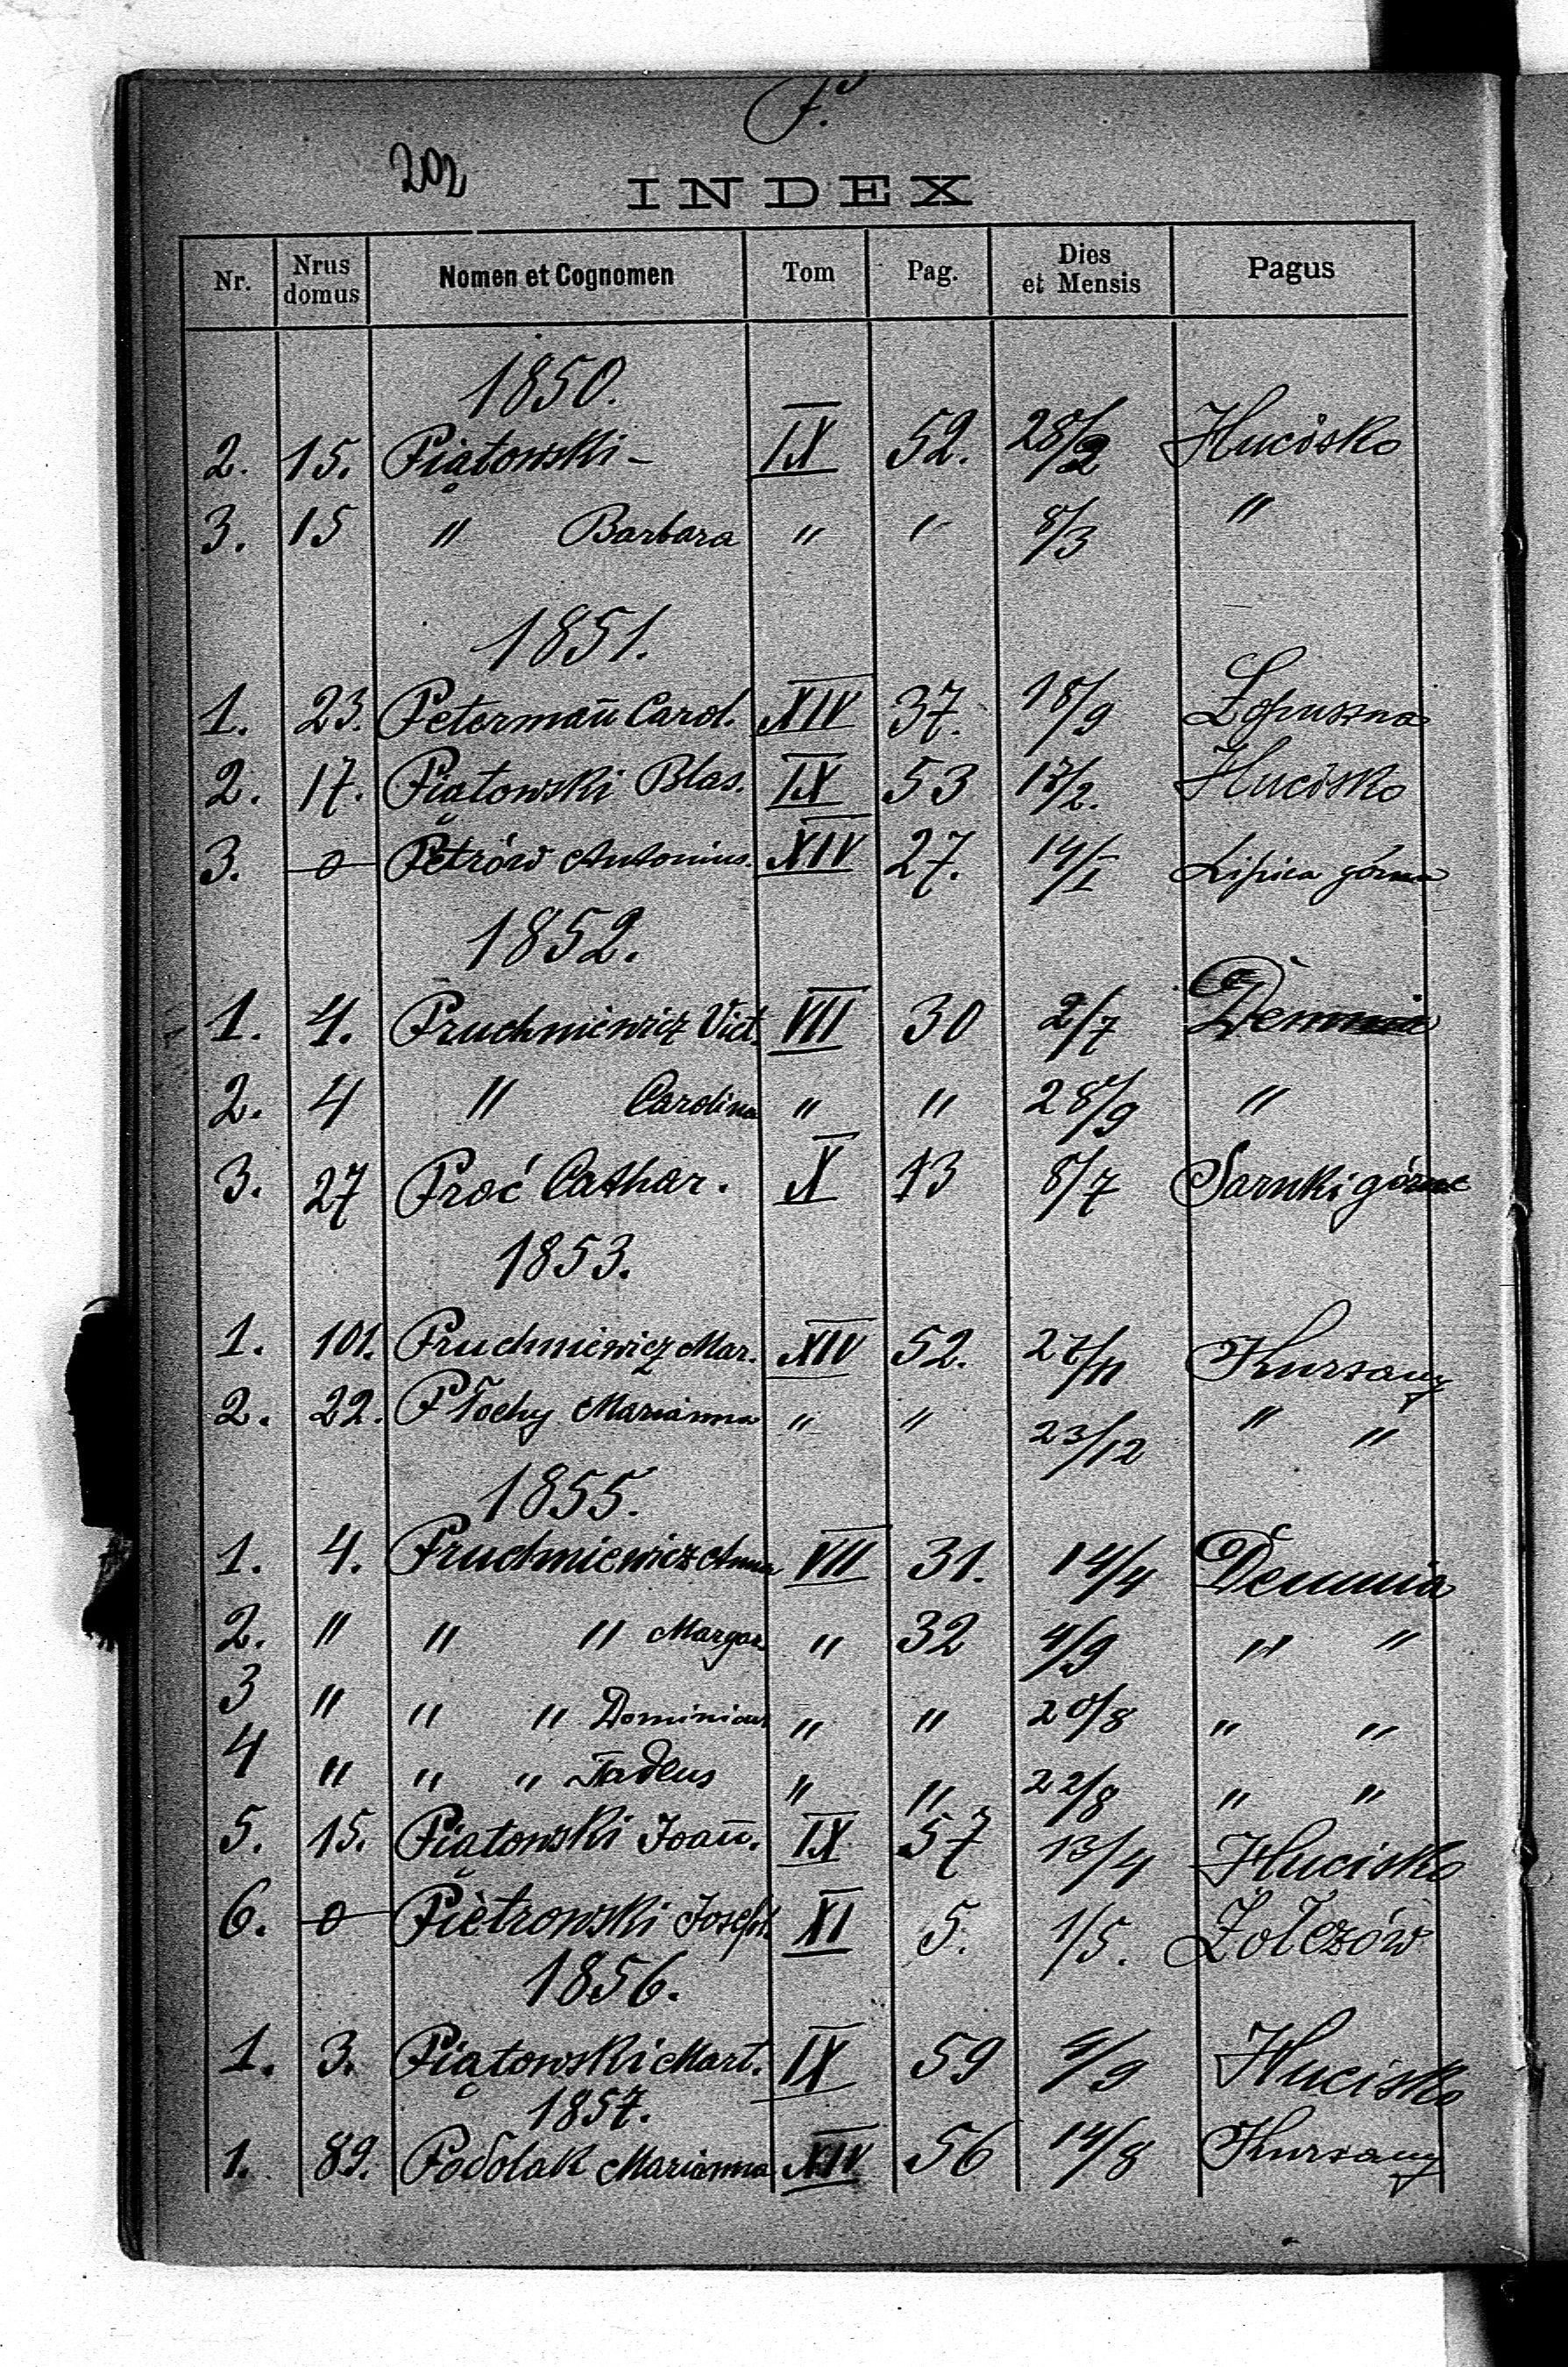 P.
202
INDEX
Nr. Nrus domus Nomen et Cognomen Tom Pag. Dies et Mensis Pagus
1850.
2. 15. Piątowski - IX 52. 28/2 Hucisko
3. 15 " Barbara " " 8/3 "
1851.
1. 23. Petermañ Carol. XIV 37. 18/9 Łopuszna
2. 17. Piątowski Blas. IX 53 17/2. Hucisko
3. o Petrów Antonius. XIV 27. 14/I Lipica górna
1852.
1. 4. Pruchniewicz Vict. VII 30 2/7 Demnia
2. 4 " Carolina " " 28/9 "
3. 27 Proć Cathar. X 13 8/7 Sarnki górne
1853.
1. 101. Pruchniewicz Mar. XIV 52. 27/11 Kurzany
2. 22. Płochy Marianna " " 23/12 " "
1855.
1. 4. Pruchniewicz Anna VII 31. 14/4 Demnia
2. " " " Margar. " 32 4/9 " "
3 " " " Dominicus " " 20/8 " "
4 " " " Tadeus " " 22/8 " "
5. 15. Piątowski Joañ. IX 57 13/4 Hucisko
6. o Pietrowski Joseph. XI 5. 1/5. Żołczów
1856.
1. 3. Piątowski Mart. IX 59 9/9 Hucisko
1857.
1. 89. Podolak Marianna XIV 56 14/8 Kurzany